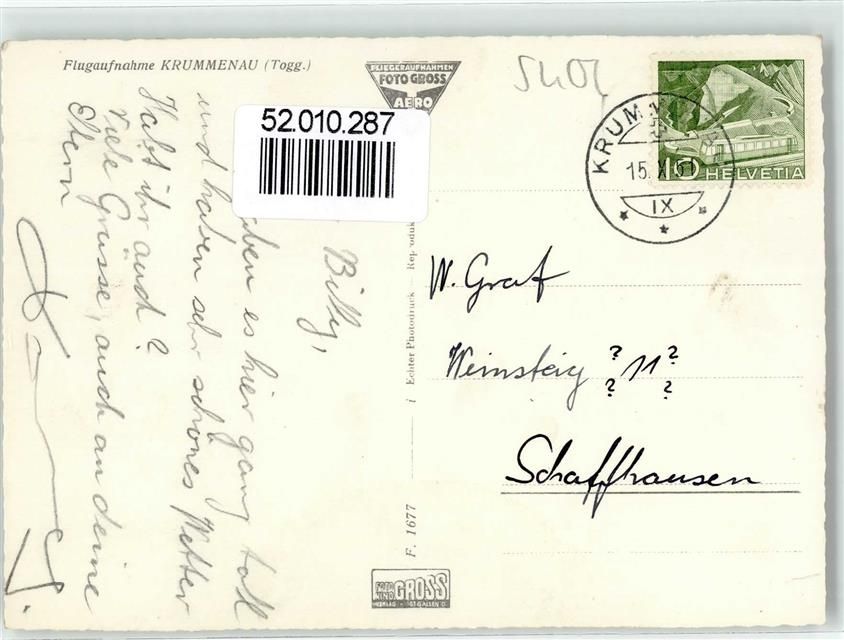 Flugaufnahme KRUMMENAU (Togg.)
FLIEGERAUFNAHMEN
FOTO GROSS
AERO
52.010.287
KRUMM
15. X
IX
10 HELVETIA
Billy,
ben es hier ganz toll
und haben sehr schönes Wetter
Habt ihr auch?
Viele Grüsse, auch an deine
Eltern
F. 1677
Echter Photodruck — Reproduk
FOTO GROSS
ST. GALLEN
W. Graf
Weinsteig ? 11 ?
? ?
Schaffhausen